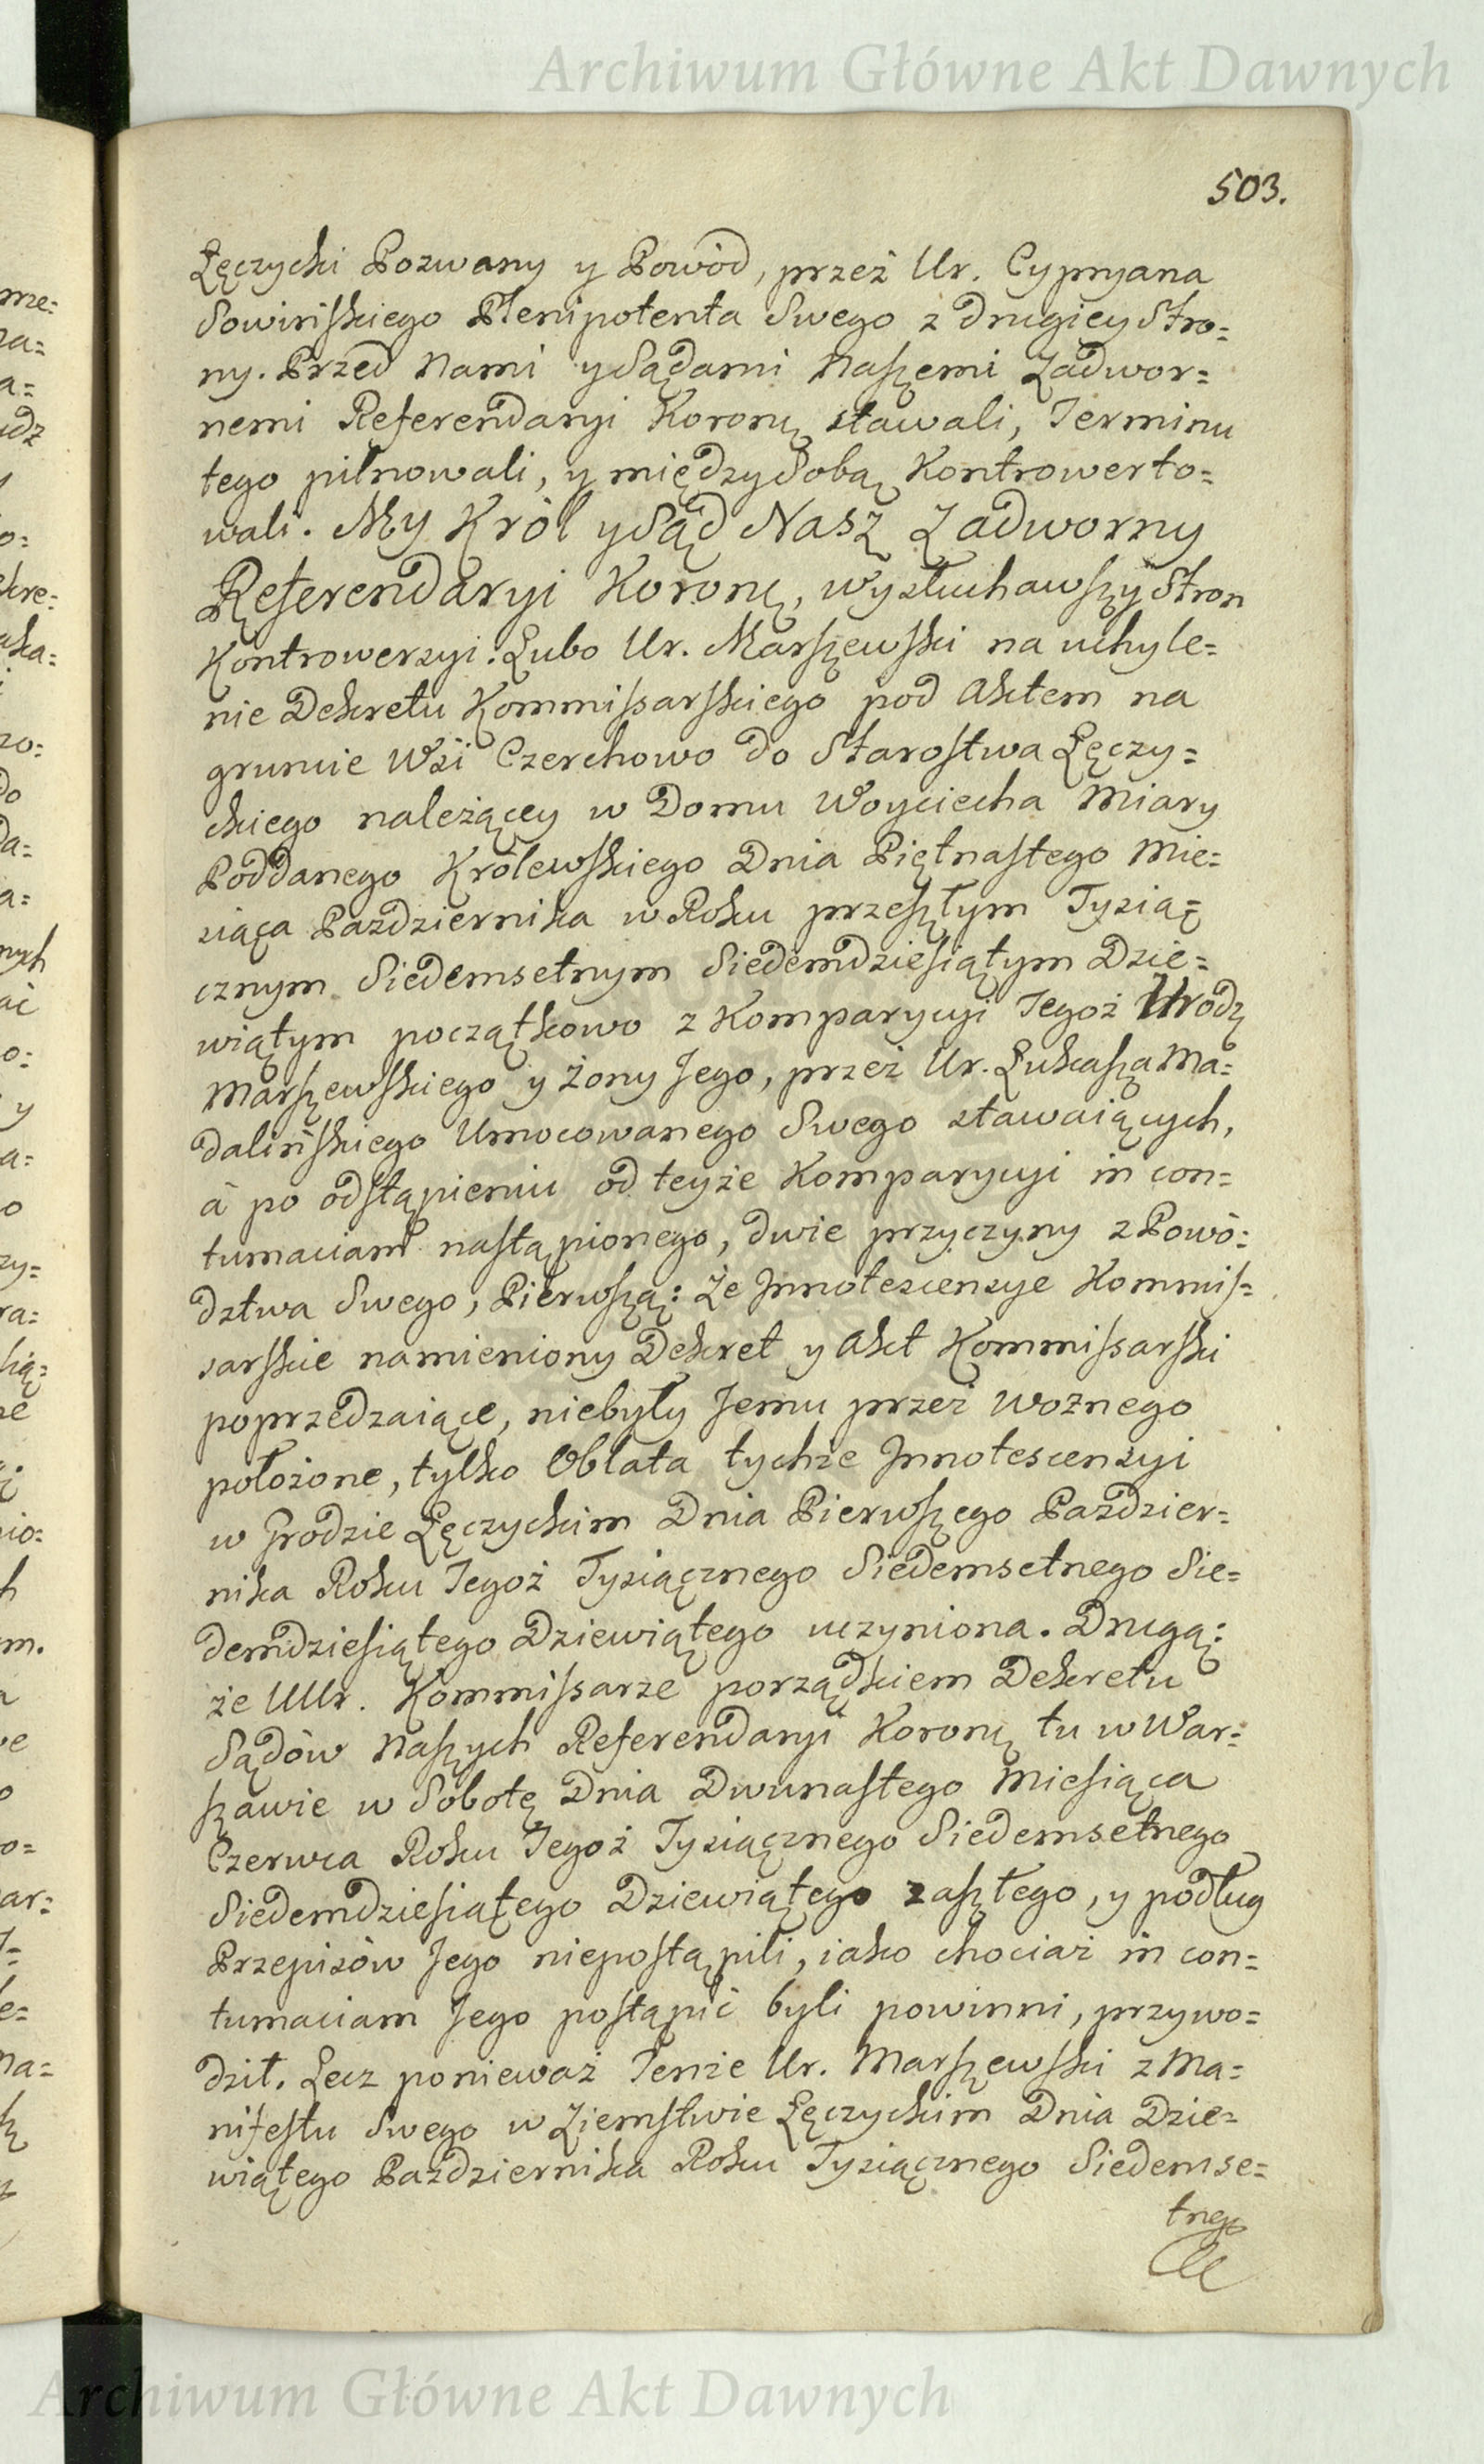 Archiwum Główne Akt Dawnych
503.
Łęczycki Pozwany y Powód, przez Ur. Cypryana
Sowińskiego Plenipotenta Swego z drugiey Stro=
ny. Przed Nami y Sądami Naszemi Zadwor=
nemi Referendaryi Koronų stawali, Terminu
tego pilnowali, y między Sobą Kontrowerto=
wali. My Król y Sąd Nasz Zadworny
Referendaryi Koronų, wysłuchawszy Stron
Kontrowersyi. Lubo Ur. Marszewski na uchyle=
nie Dekretu Kommissarskiego pod Aktem na
gruncie Wsi Czerchowo do Starostwa Łęczy=
ckiego należącey w Domu Woyciecha Miary
Poddanego Królewskiego Dnia Piętnastego Mie=
siąca Pazdziernika w Roku przeszłym Tysią=
cznym Siedemsetnym Siedemdziesiątym Dzie=
wiątym początkowo z Komparycyi Tegoż Urodz
Marszewskiego y żony Jego, przez Ur. Łukasza Ma=
dalińskiego Umocowanego Swego stawaiących,
á po odstąpieniu od teyże Komparycyi in con=
tumaciam nastąpionego, dwie przyczyny z Powó=
dztwa Swego, Pierwszą: Że Innotescensye Kommis=
sarskie namieniony Dekret y Akt Kommissarski
poprzedzaiące, niebyły Jemu przez Woznego
położone, tylko Oblata tychże Innotescensyi
w Grodzie Łęczyckim Dnia Pierwszego Pazdzier=
nika Roku Tegoż Tysiącznego Siedemsetnego Sie=
demdziesiątego Dziewiątego uczyniona. Drugą:
że UUr. Kommissarze porządkiem Dekretu
Sądów Naszych Referendaryi Koronų tu w War=
szawie w Sobotę Dnia Dwunastego Miesiąca
Czerwca Roku Tegoż Tysiącznego Siedemsetnego
Siedemdziesiątego Dziewiątego zaszłego, y podług
Przepisów Jego niepostąpili, iako chociaż in con=
tumaciam Jego postąpić byli powinni, przywo=
dził. Lecz ponieważ Tenże Ur. Marszewski z Ma=
nifestu Swego w Ziemstwie Łęczyckim Dnia Dzie=
wiątego Pazdziernika Roku Tysiącznego Siedemse=
tnego
Archiwum Główne Akt Dawnych